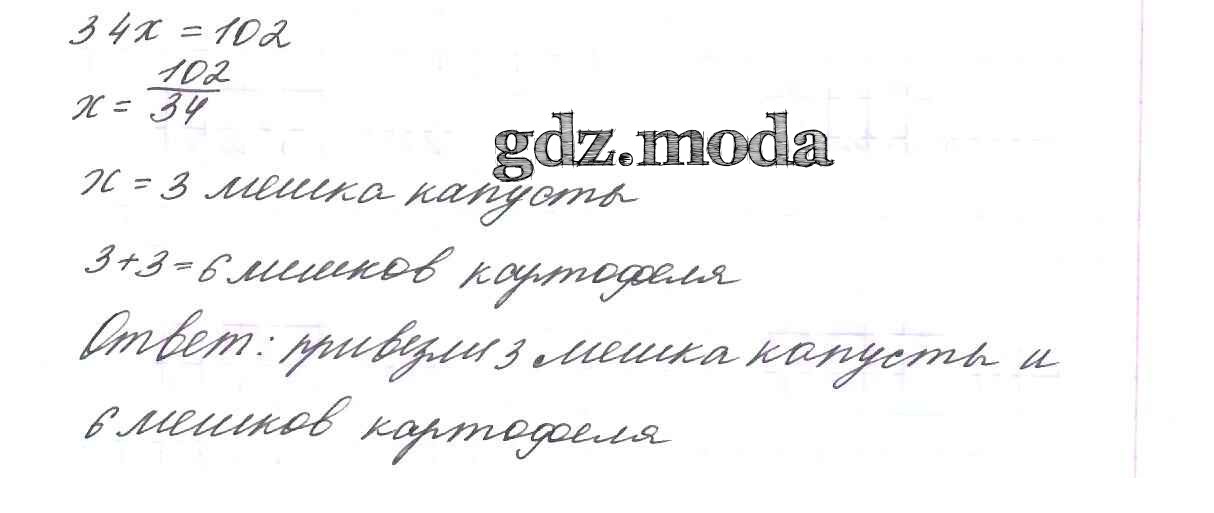 34x = 102
x = 102/34
gdz.moda
x = 3 мешка капусты
3+3=6 мешков картофеля
Ответ: привезли 3 мешка капусты и
6 мешков картофеля